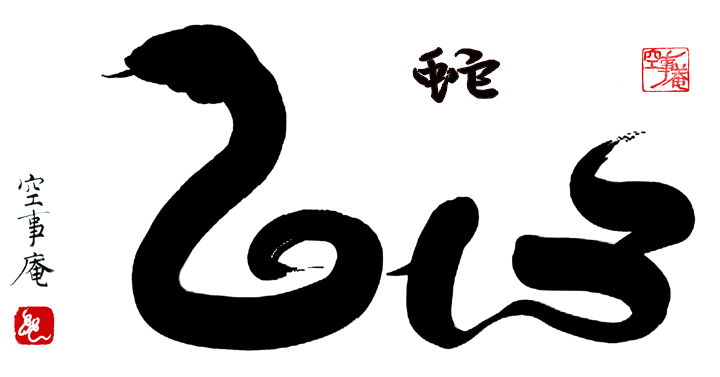 蛇
空事庵
2013
空事庵